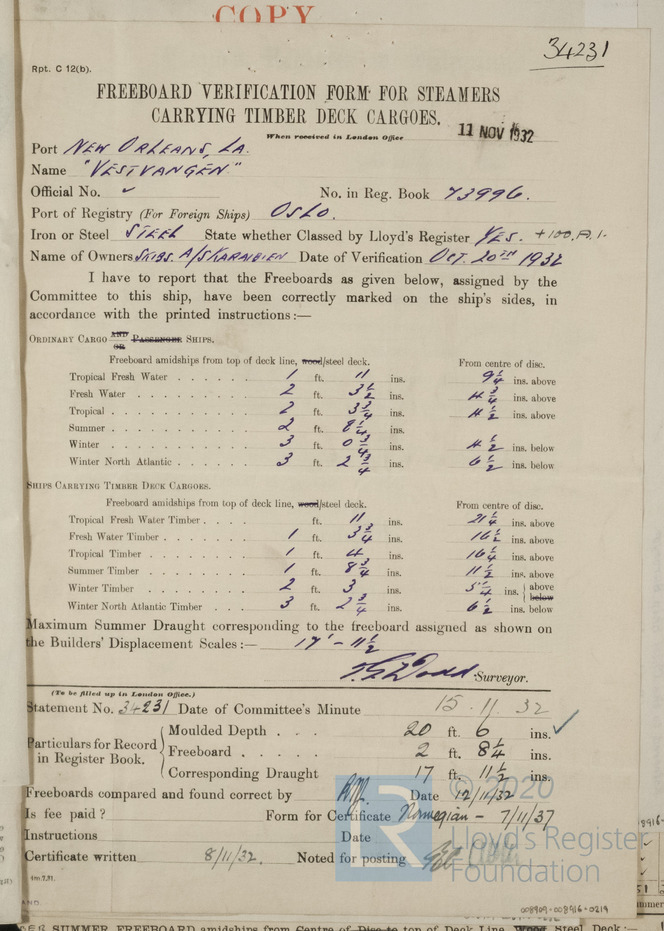 COPY
34231
Rpt. C 12(b).
FREEBOARD VERIFICATION FORM FOR STEAMERS
CARRYING TIMBER DECK CARGOES.
When received in London Office 11 NOV 1932
Port NEW ORLEANS, LA.
Name "VESTVANGEN"
Official No. ✓ No. in Reg. Book 73996.
Port of Registry (For Foreign Ships) OSLO.
Iron or Steel STEEL State whether Classed by Lloyd's Register YES. +100.A.1.
Name of Owners SKIBS. A/S KARANGEN Date of Verification OCT. 20TH 1932
I have to report that the Freeboards as given below, assigned by the
Committee to this ship, have been correctly marked on the ship's sides, in
accordance with the printed instructions:—
ORDINARY CARGO AND OR PASSENGER SHIPS.
Freeboard amidships from top of deck line, wood/steel deck. From centre of disc.
Tropical Fresh Water 1 ft. 11 ins. 9 1/4 ins. above
Fresh Water 2 ft. 3 1/2 ins. 4 3/4 ins. above
Tropical 2 ft. 3 3/4 ins. 4 1/2 ins. above
Summer 2 ft. 8 1/4 ins.
Winter 3 ft. 0 3/4 ins. 4 1/2 ins. below
Winter North Atlantic 3 ft. 2 3/4 ins. 6 1/2 ins. below
SHIPS CARRYING TIMBER DECK CARGOES.
Freeboard amidships from top of deck line, wood/steel deck. From centre of disc.
Tropical Fresh Water Timber ft. 11 ins. 21 1/4 ins. above
Fresh Water Timber 1 ft. 3 3/4 ins. 16 1/2 ins. above
Tropical Timber 1 ft. 4 ins. 16 1/4 ins. above
Summer Timber 1 ft. 8 3/4 ins. 11 1/2 ins. above
Winter Timber 2 ft. 3 ins. 5 1/4 ins. above below
Winter North Atlantic Timber 3 ft. 2 3/4 ins. 6 1/2 ins. below
Maximum Summer Draught corresponding to the freeboard assigned as shown on
the Builders' Displacement Scales:— 17' - 11 1/2
Dodd Surveyor.
(To be filled up in London Office.)
Statement No. 34231 Date of Committee's Minute 15.11.32
Particulars for Record in Register Book.
Moulded Depth 20 ft. 6 ins. ✓
Freeboard 2 ft. 8 1/4 ins.
Corresponding Draught 17 ft. 11 1/2 ins.
Freeboards compared and found correct by Date 12/11/32
Is fee paid? Form for Certificate Norwegian - 7/11/37
Instructions Date
Certificate written 8/11/32. Noted for posting
© 2020
Lloyd's Register
Foundation
008909-008916-0219